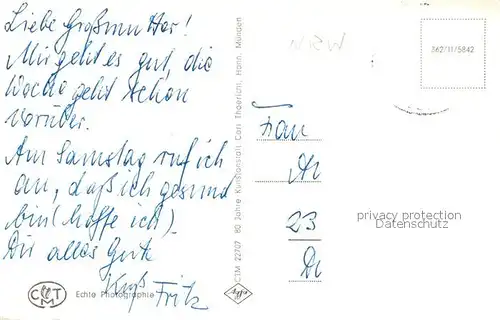 Liebe Großmutter!
Mir geht es gut, die
Woche geht schon
vorüber.
Am Samstag ruf ich
an, daß ich gesund
bin (hoffe ich).
Dir alles Gute
Kuß Fritz
CMT
Echte Photographie
CTM 22707 80 Jahre Kunstanstalt Carl Thoericht, Hann. Münden
Agfa
NRW
362/11/5842
Frau
23
privacy protection
Datenschutz